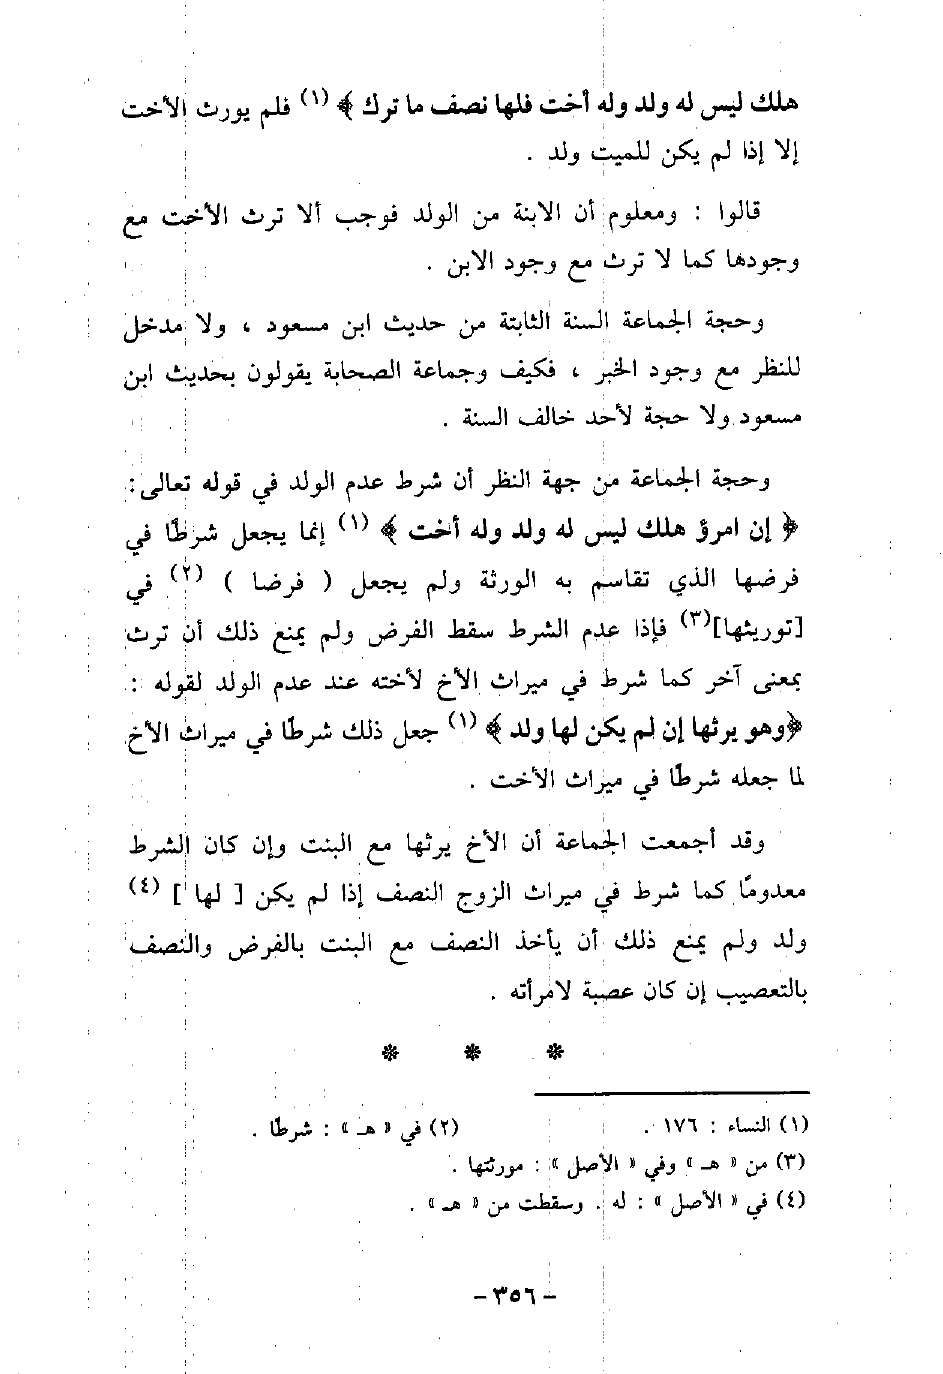 هلك ليس له ولد وله أخت فلها نصف ما ترك ﴾ (١) فلم يورث الأخت
إلا إذا لم يكن للميت ولد .
قالوا : ومعلوم أن الابنة من الولد فوجب ألا ترث الأخت مع
وجودها كما لا ترث مع وجود الابن .
وحجة الجماعة السنة الثابتة من حديث ابن مسعود ، ولا مدخل
للنظر مع وجود الخبر ، فكيف وجماعة الصحابة يقولون بحديث ابن
مسعود ولا حجة لأحد خالف السنة .
وحجة الجماعة من جهة النظر أن شرط عدم الولد في قوله تعالى :
﴿ إن امرؤ هلك ليس له ولد وله أخت ﴾ (١) إنما يجعل شرطًا في
فرضها الذي تقاسم به الورثة ولم يجعل ( فرضا ) (٢) في
[توريثها](٣) فإذا عدم الشرط سقط الفرض ولم يمنع ذلك أن ترث
بمعنى آخر كما شرط في ميراث الأخ لأخته عند عدم الولد لقوله :
﴿وهو يرثها إن لم يكن لها ولد ﴾ (١) جعل ذلك شرطًا في ميراث الأخ
لما جعله شرطًا في ميراث الأخت .
وقد أجمعت الجماعة أن الأخ يرثها مع البنت وإن كان الشرط
معدومًا كما شرط في ميراث الزوج النصف إذا لم يكن [ لها ] (٤)
ولد ولم يمنع ذلك أن يأخذ النصف مع البنت بالفرض والنصف
بالتعصيب إن كان عصبة لامرأته .
* * *
(١) النساء : ١٧٦ . (٢) في « هـ » : شرطًا .
(٣) من « هـ » وفي « الأصل » : مورثتها .
(٤) في « الأصل » : له . وسقطت من « هـ » .
- ٣٥٦ -